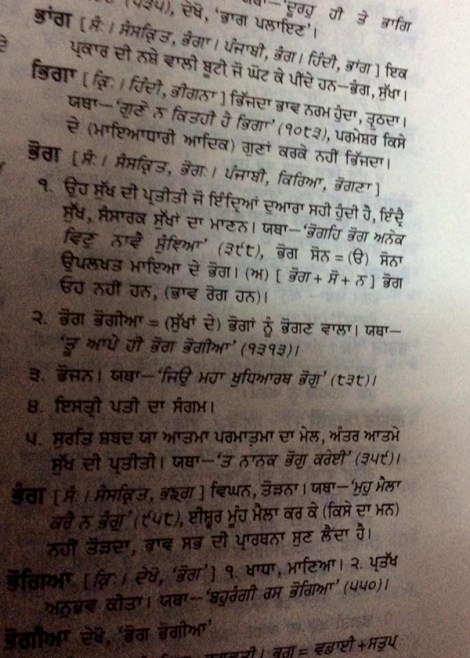 (੫੩੫), ਦੇਖੋ, 'ਭਾਗ ਪਲਾਇਣ'।
ਭਾਂਗ [ਸੰ:। ਸੰਸਕ੍ਰਿਤ, ਭੰਗਾ। ਪੰਜਾਬੀ, ਭੰਗ। ਹਿੰਦੀ, ਭਾਂਗ] ਇਕ
ਪ੍ਰਕਾਰ ਦੀ ਨਸ਼ੇ ਵਾਲੀ ਬੂਟੀ ਜੋ ਘੋਟ ਕੇ ਪੀਂਦੇ ਹਨ—ਭੰਗ, ਸੁੱਖਾ।
ਭਿਗਾ [ਕ੍ਰਿ:। ਹਿੰਦੀ, ਭੀਗਨਾ] ਭਿੱਜਦਾ ਭਾਵ ਨਰਮ ਹੁੰਦਾ, ਤ੍ਰੁਠਦਾ।
ਯਥਾ—'ਗੁਣੇ ਨ ਕਿਤਹੀ ਹੈ ਭਿਗਾ' (੧੦੯੩), ਪਰਮੇਸ਼ਰ ਕਿਸੇ
ਦੇ (ਮਾਇਆਧਾਰੀ ਆਦਿਕ) ਗੁਣਾਂ ਕਰਕੇ ਨਹੀਂ ਭਿੱਜਦਾ।
ਭੋਗ [ਸੰ:। ਸੰਸਕ੍ਰਿਤ, ਭੋਗ:। ਪੰਜਾਬੀ, ਕਿਰਿਆ, ਭੋਗਣਾ]
੧. ਉਹ ਸੁੱਖ ਦੀ ਪ੍ਰਤੀਤੀ ਜੋ ਇੰਦ੍ਰਿਆਂ ਦੁਆਰਾ ਸਹੀ ਹੁੰਦੀ ਹੈ, ਇੰਦ੍ਰੈ
ਸੁੱਖ, ਸੰਸਾਰਕ ਸੁੱਖਾਂ ਦਾ ਮਾਣਨਾ। ਯਥਾ—'ਭੋਗਹਿ ਭੋਗ ਅਨੇਕ
ਵਿਣੁ ਨਾਵੈ ਸੁੰਞਿਆ' (੩੯੮), ਭੋਗ ਸੋਨ = (ੳ) ਸੋਨਾ
ਉਪਲਖਤ ਮਾਇਆ ਦੇ ਭੋਗ। (ਅ) [ਭੋਗ + ਸੋ + ਨ] ਭੋਗ
ਓਹ ਨਹੀਂ ਹਨ, (ਭਾਵ ਰੋਗ ਹਨ)।
੨. ਭੋਗ ਭੋਗੀਆ = (ਸੁੱਖਾਂ ਦੇ) ਭੋਗਾਂ ਨੂੰ ਭੋਗਣ ਵਾਲਾ। ਯਥਾ—
'ਤੂ ਆਪੇ ਹੀ ਭੋਗ ਭੋਗੀਆ' (੧੩੧੩)।
੩. ਭੋਜਨ। ਯਥਾ—'ਜਿਉ ਮਹਾ ਖੁਧਿਆਰਥ ਭੋਗੁ' (੮੩੮)।
੪. ਇਸਤ੍ਰੀ ਪਤੀ ਦਾ ਸੰਗਮ।
੫. ਸੁਰਤਿ ਸ਼ਬਦ ਯਾ ਆਤਮਾ ਪਰਮਾਤਮਾ ਦਾ ਮੇਲ, ਅੰਤਰ ਆਤਮੇ
ਸੁੱਖ ਦੀ ਪ੍ਰਤੀਤੀ। ਯਥਾ—'ਤ ਨਾਨਕ ਭੋਗੁ ਕਰੇਈ' (੩੫੯)।
ਭੰਗ [ਸੰ:। ਸੰਸਕ੍ਰਿਤ, ਭਙ੍ਗ] ਵਿਘਨ, ਤੋੜਨਾ। ਯਥਾ—'ਮੁਹੁ ਮੈਲਾ
ਕਰੈ ਨ ਭੰਗੁ' (੯੫੯), ਈਸ਼੍ਵਰ ਮੂੰਹ ਮੈਲਾ ਕਰ ਕੇ (ਕਿਸੇ ਦਾ ਮਨ)
ਨਹੀਂ ਤੋੜਦਾ, ਭਾਵ ਸਭ ਦੀ ਪ੍ਰਾਰਥਨਾ ਸੁਣ ਲੈਂਦਾ ਹੈ।
ਭੋਗਿਆ [ਕ੍ਰਿ:। ਦੇਖੋ, 'ਭੋਗ'] ੧. ਖਾਧਾ, ਮਾਣਿਆ। ੨. ਪ੍ਰਤੱਖ
ਅਨੁਭਵ ਕੀਤਾ। ਯਥਾ—'ਬਹੁਰੰਗੀ ਰਸ ਭੋਗਿਆ' (੫੫੦)।
ਭੋਗੀਆ ਦੇਖੋ, 'ਭੋਗ ਭੋਗੀਆ'
ਭਗ = ਵਡਾਈ + ਸਤੁਪ